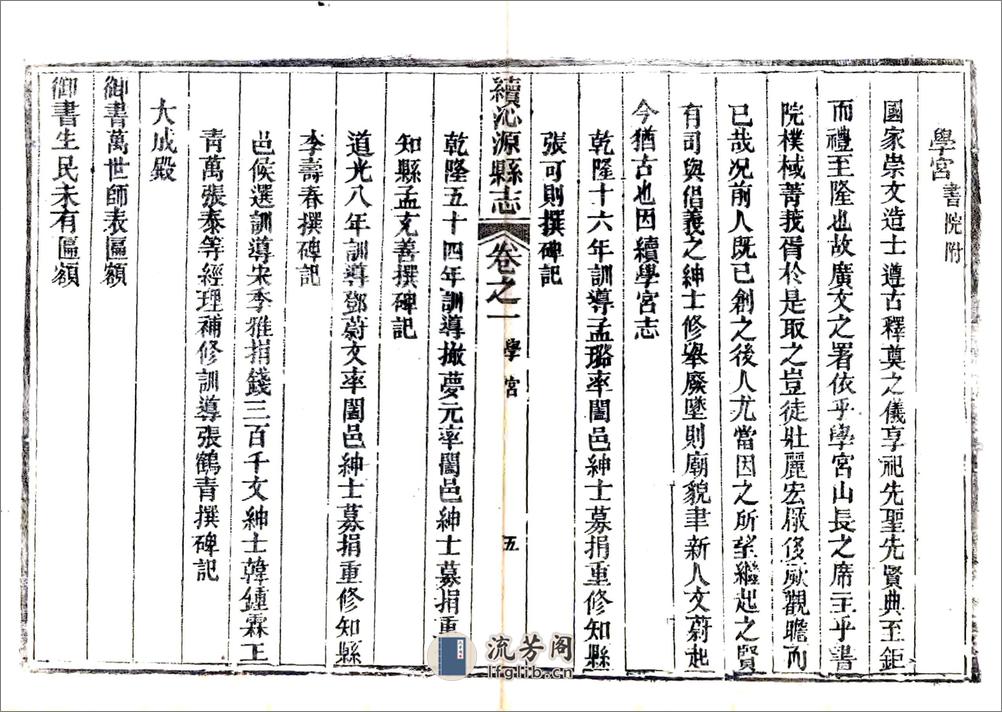 學宮 書院附
國家崇文造士遵古釋奠之儀享祀先聖先賢典至鉅
而禮至隆也故廣文之署依乎學宮山長之席主乎書
院樸棫菁莪胥於是取之豈徒壯麗宏厰侈厥觀瞻而
已哉况前人既已創之後人尤當因之所望繼起之賢
有司與倡義之紳士修舉廢墜則廟貌聿新人文蔚起
今猶古也因續學宮志
乾隆十六年訓導孟璐率闔邑紳士募捐重修知縣
張可則撰碑記
續沁源縣志 卷之一 學宮 五
乾隆五十四年訓導撖夢元率闔邑紳士募捐重
知縣孟克善撰碑記
道光八年訓導鄧蔚文率闔邑紳士募捐重修知縣
李壽春撰碑記
邑候選訓導宋季雅捐錢三百千文紳士韓鍾霖王
青萬張泰等經理補修訓導張鶴青撰碑記
大成殿
御書萬世師表匾額
御書生民未有匾額
流芳阁
lfglib.cn